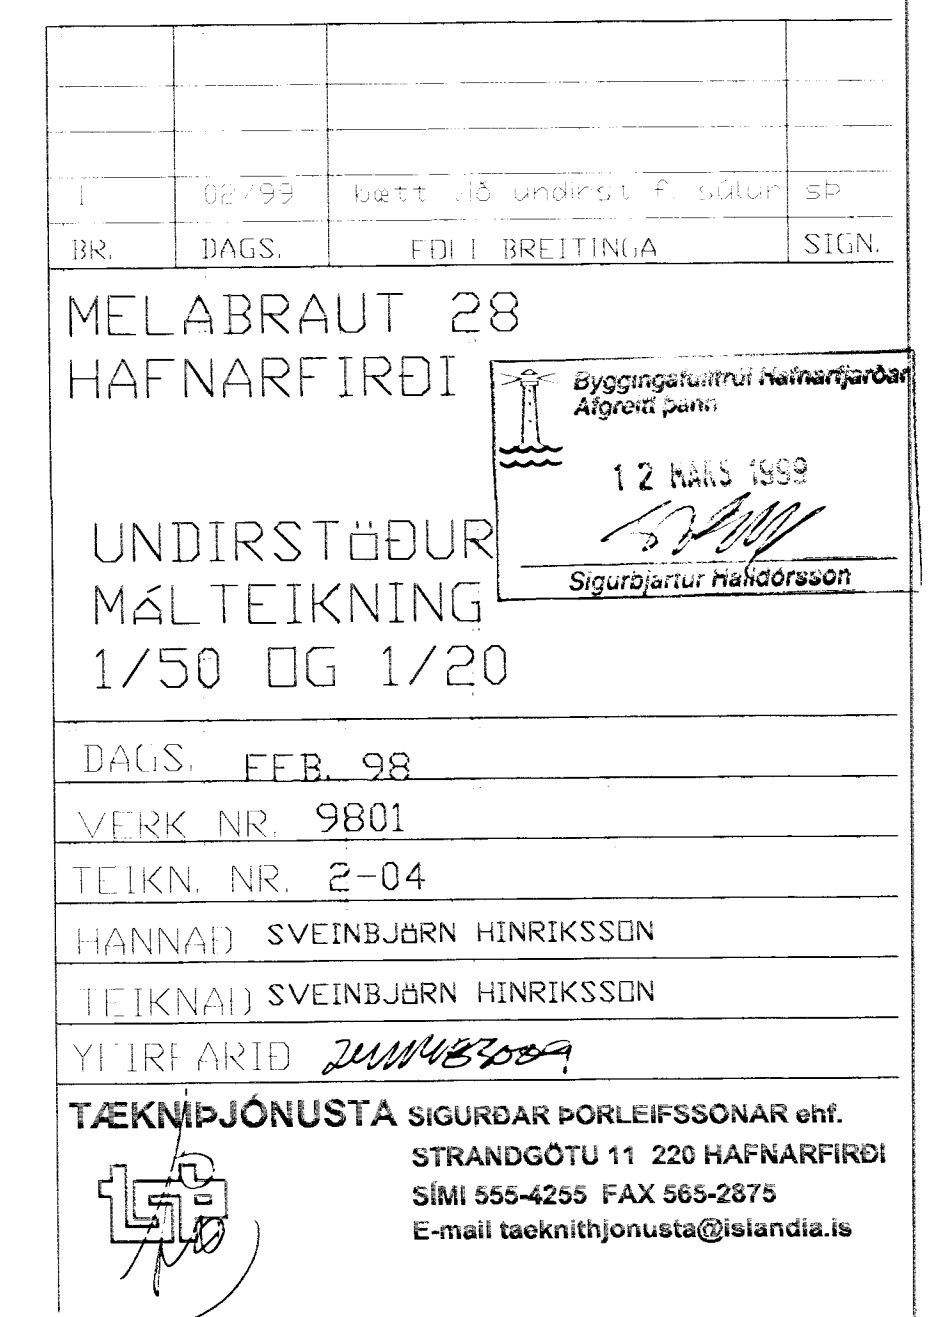 1 02/99 bætt við undirst f. súlur sÞ
BR. DAGS. EÐLI BREITINGA SIGN.
MELABRAUT 28
HAFNARFIRÐI
Byggingafulltrúi Hafnarfjarðar
Afgreitt þann
12 MARS 1999
Sigurbjartur Halldórsson
UNDIRSTÖÐUR
MÁLTEIKNING
1/50 OG 1/20
DAGS. FEB. 98
VERK NR. 9801
TEIKN. NR. 2-04
HANNAÐ SVEINBJÖRN HINRIKSSON
TEIKNAÐ SVEINBJÖRN HINRIKSSON
YFIRFARIÐ
TÆKNIÞJÓNUSTA SIGURÐAR ÞORLEIFSSONAR ehf.
STRANDGÖTU 11 220 HAFNARFIRÐI
SÍMI 555-4255 FAX 565-2875
E-mail taeknithjonusta@islandia.is
tsþ